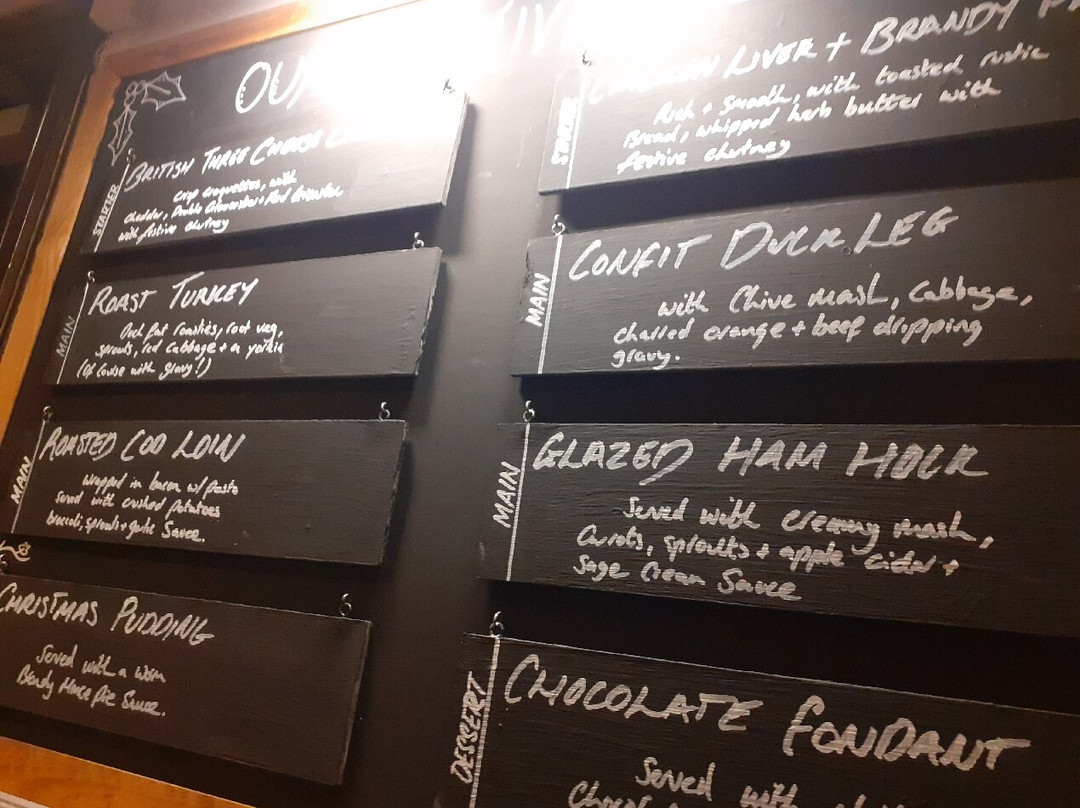 OU
STARTER
BRITISH THREE CHEESE
Crisp croquettes, with
Cheddar, Double Gloucester + Red Leicester
with festive chutney
MAIN
ROAST TURKEY
Duck fat roasties, root veg,
sprouts, red cabbage + a yorkie
(of course with gravy!)
MAIN
ROASTED COD LOIN
wrapped in bacon w/ pesto
Served with crushed potatoes
broccoli, sprouts + garlic Sauce.
CHRISTMAS PUDDING
Served with a warm
Brandy Mince Pie Sauce.
STARTER
LIVER + BRANDY
Rich + Smooth, with toasted rustic
Bread, whipped herb butter with
festive chutney
MAIN
CONFIT DUCK LEG
with Chive mash, Cabbage,
Charred orange + beef dripping
gravy.
MAIN
GLAZED HAM HOCK
Served with creamy mash,
Carrots, sprouts + apple cider +
Sage Cream Sauce
DESSERT
CHOCOLATE FONDANT
Served with